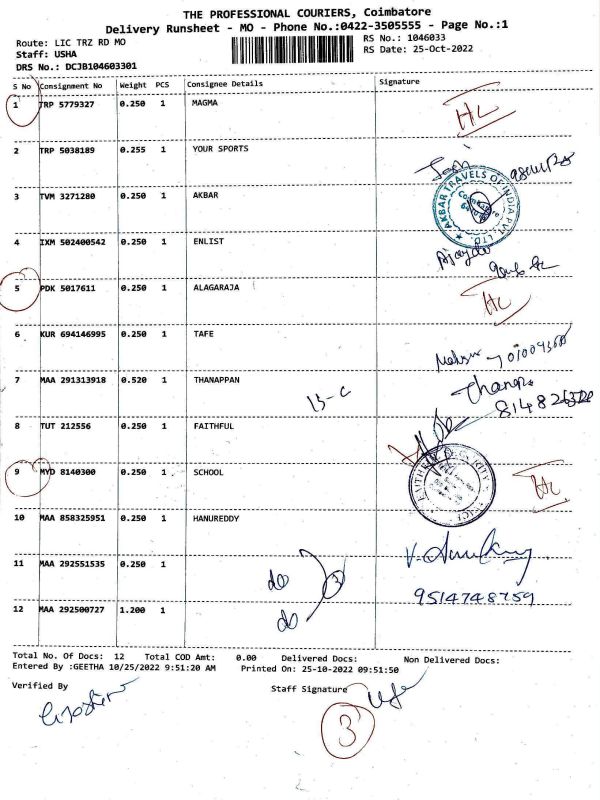 THE PROFESSIONAL COURIERS, Coimbatore
Delivery Runsheet - MO - Phone No.:0422-3505555 - Page No.:1
Route: LIC TRZ RD MO RS No.: 1046033
Staff: USHA RS Date: 25-Oct-2022
DRS No.: DCJB104603301
S No Consignment No Weight PCS Consignee Details Signature
1 TRP 5779327 0.250 1 MAGMA HL
2 TRP 5038189 0.255 1 YOUR SPORTS
3 TVM 3271280 0.250 1 AKBAR
AKBAR TRAVELS OF INDIA PVT. LTD.
4 IXM 502400542 0.250 1 ENLIST
5 PDK 5017611 0.250 1 ALAGARAJA HL
6 KUR 694146995 0.250 1 TAFE
7 MAA 291313918 0.520 1 THANAPPAN
8 TUT 212556 0.250 1 FAITHFUL
9 MYD 8140300 0.250 1 SCHOOL HL
10 MAA 858325951 0.250 1 HANUREDDY
11 MAA 292551535 0.250 1 do 3
9514748759
12 MAA 292500727 1.200 1 do
Total No. Of Docs: 12 Total COD Amt: 0.00 Delivered Docs: Non Delivered Docs:
Entered By :GEETHA 10/25/2022 9:51:20 AM Printed On: 25-10-2022 09:51:50
Verified By Staff Signature
3